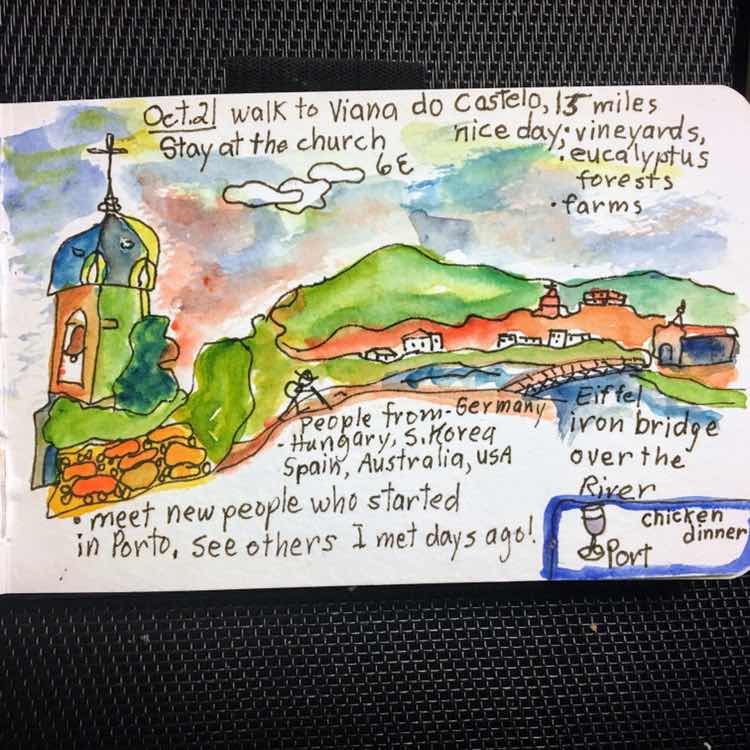 Oct.21 walk to Viana do Castelo, 15 miles
Stay at the church
6€
nice day; vineyards,
• eucalyptus
forests
• farms
People from - Germany
- Hungary, S. Korea
Spain, Australia, USA
Eiffel
iron bridge
over the
River
• meet new people who started
in Porto. See others I met days ago!
chicken
dinner
Port